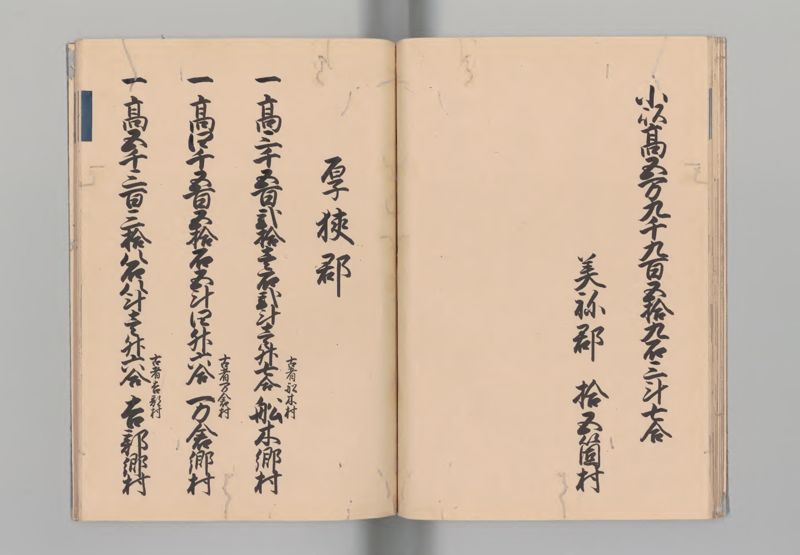 小以高五万九千九百五拾九石三斗七合
美祢郡 拾五箇村
厚狭郡
一 高三千五百弐拾壱石弐斗壱升七合 古者船木村 船木郷村
一 高四千五百五拾石五斗四升六合 古者万倉村 万倉郷村
一 高五千三百三拾八石八斗壱升六合 古者吉部村 吉部郷村